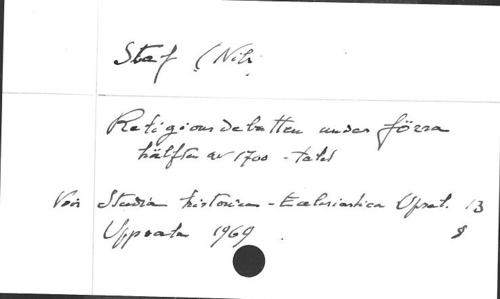 Staf (Nils
Religionsdebatten under förra
hälften av 1700-talet
Voir Studia historico-Ecclesiastica Upsal. 13
Uppsala 1969 8